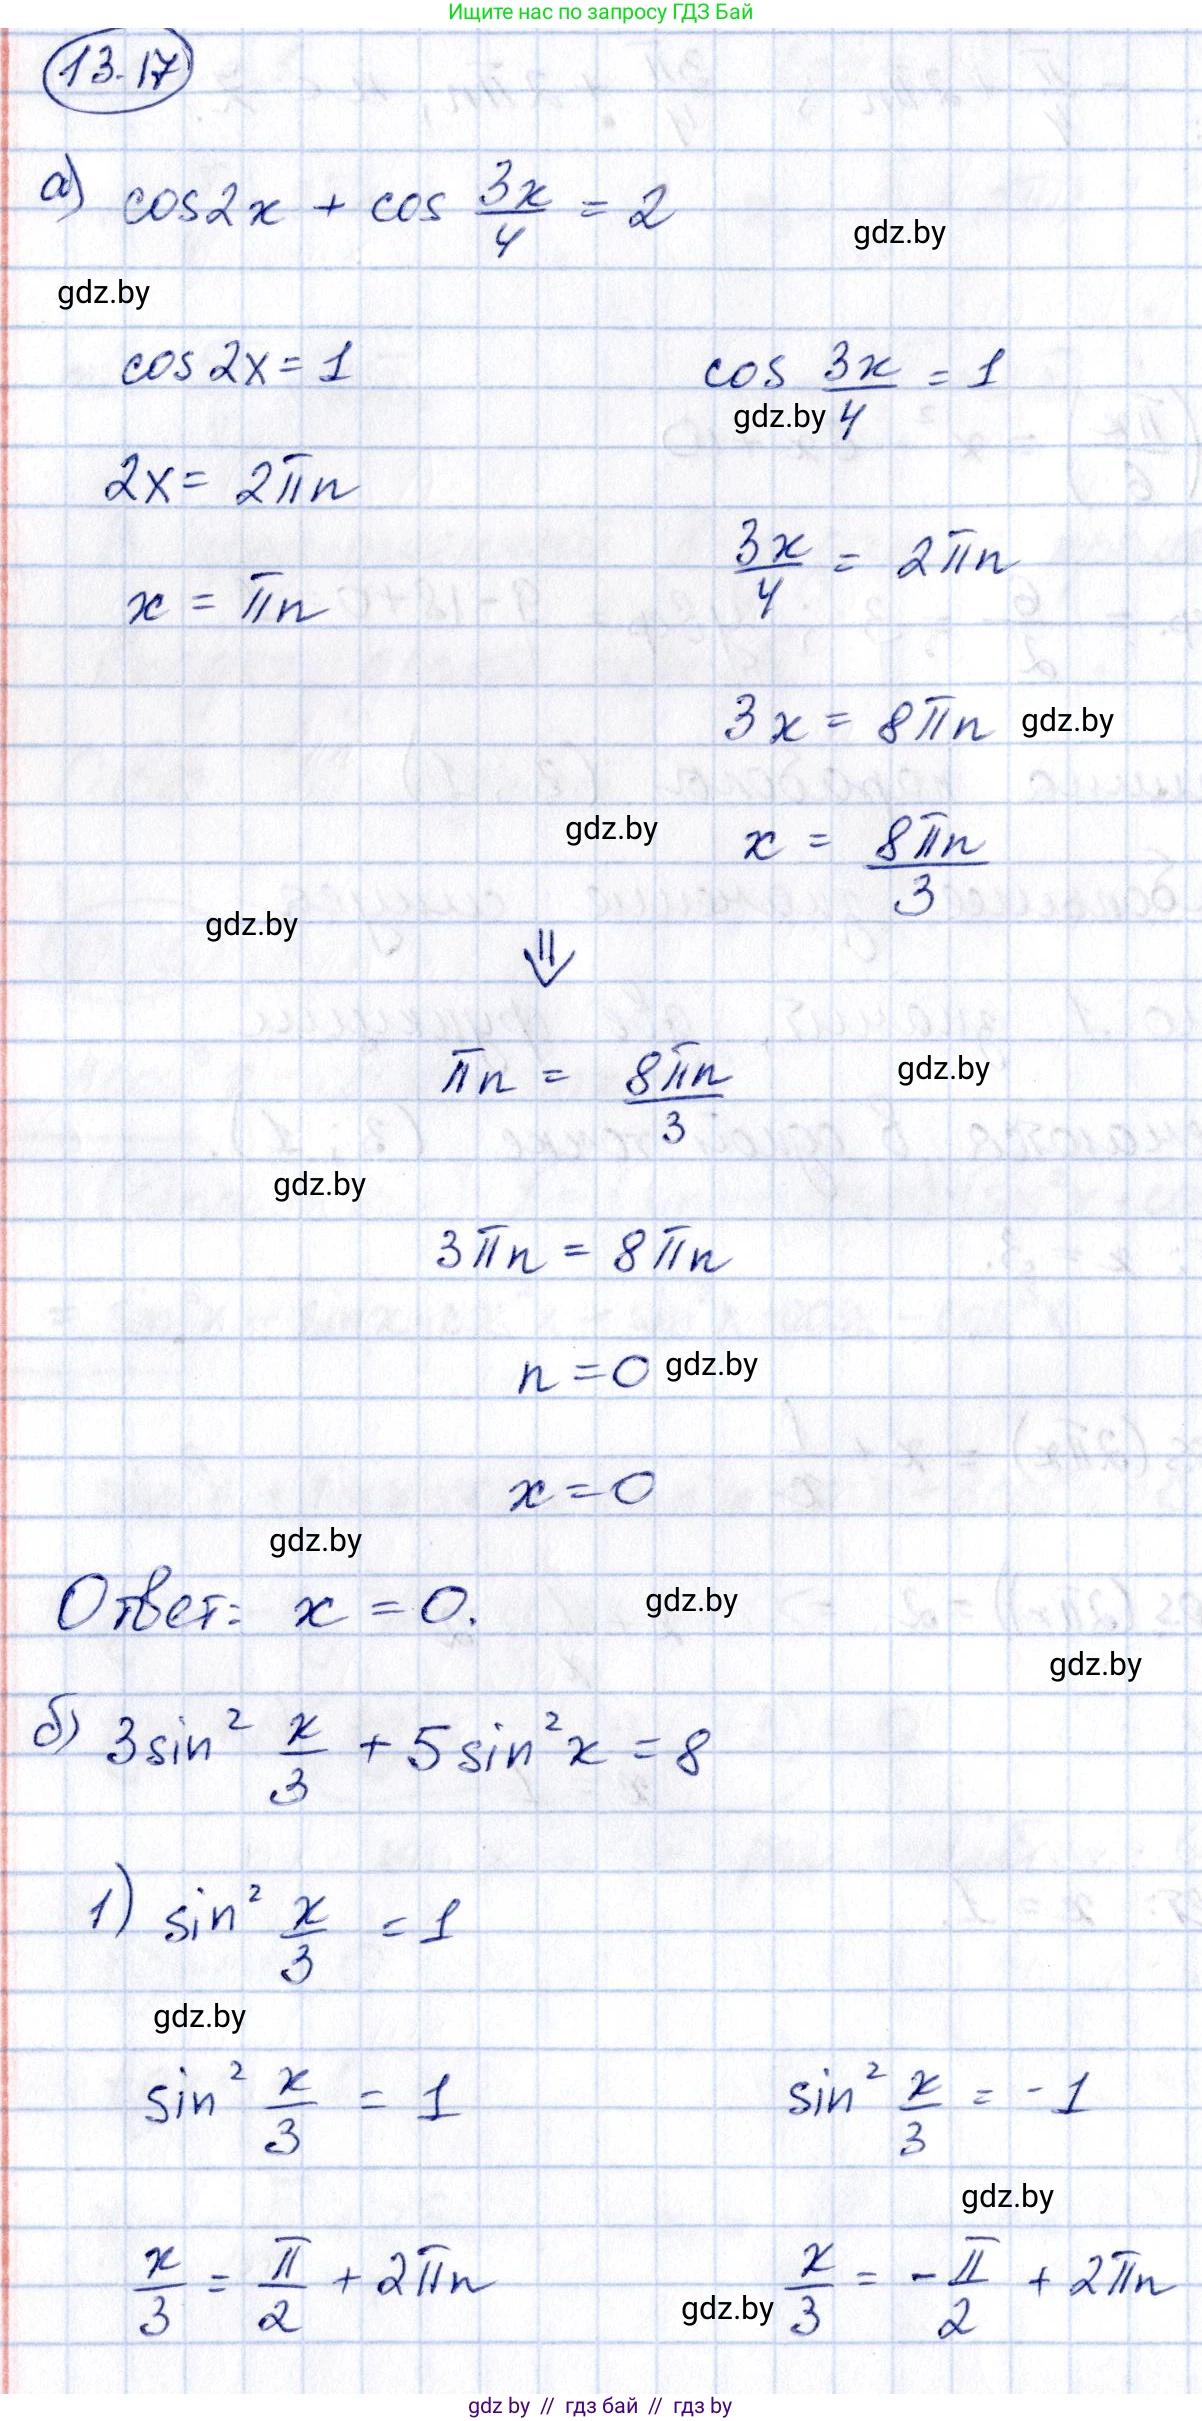 Ищите нас по запросу ГДЗ Бай
13.17
а) cos2x + cos 3x/4 = 2
gdz.by
gdz.by
cos 2x = 1    cos 3x/4 = 1
gdz.by
2x = 2πn
3x/4 = 2πn
x = πn
3x = 8πn gdz.by
gdz.by x = 8πn/3
gdz.by
⇓
πn = 8πn/3 gdz.by
gdz.by
3πn = 8πn
n = 0 gdz.by
x = 0
gdz.by
Ответ: x = 0. gdz.by
gdz.by
б) 3sin² x/3 + 5sin²x = 8
1) sin² x/3 = 1
gdz.by
sin² x/3 = 1    sin² x/3 = -1
gdz.by
x/3 = π/2 + 2πn    x/3 = -π/2 + 2πn
gdz.by
gdz by // гдз бай // гдз by